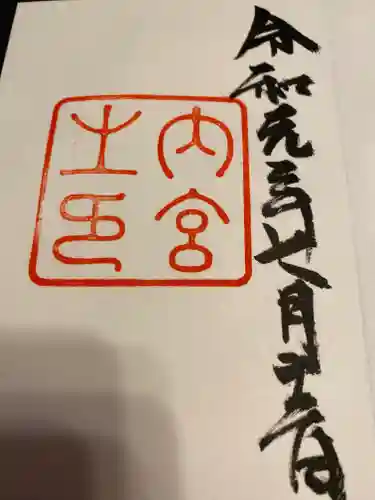 令和元年七月
日
内宮
之印